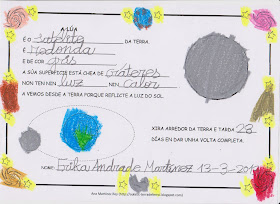 A LÚA
É O Satélite DA TERRA.
É Redonda
É DE COR gris
A SÚA SUPERFICIE ESTÁ CHEA DE Cráteres
NON TEN NIN luz NEN Calor
A VEMOS DESDE A TERRA PORQUE REFLICTE A LUZ DO SOL.
XIRA ARREDOR DA TERRA E TARDA 28
DÍAS EN DAR UNHA VOLTA COMPLETA.
NOME: Erika Andrade Martinez 13-3-201